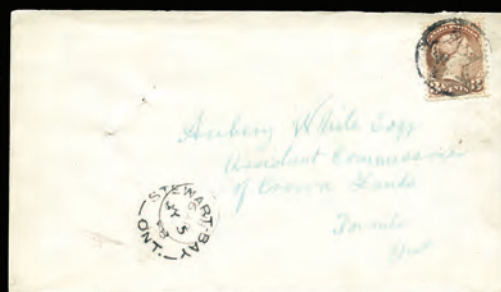 Aubrey White Esqr
Assistant Commissioner
of Crown Lands
Toronto
Ont
STEWART-BAY
JY 5
ONT.